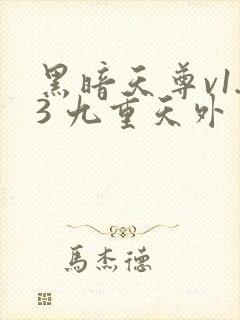 黑暗天尊v1.
3 九重天外
馬杰德